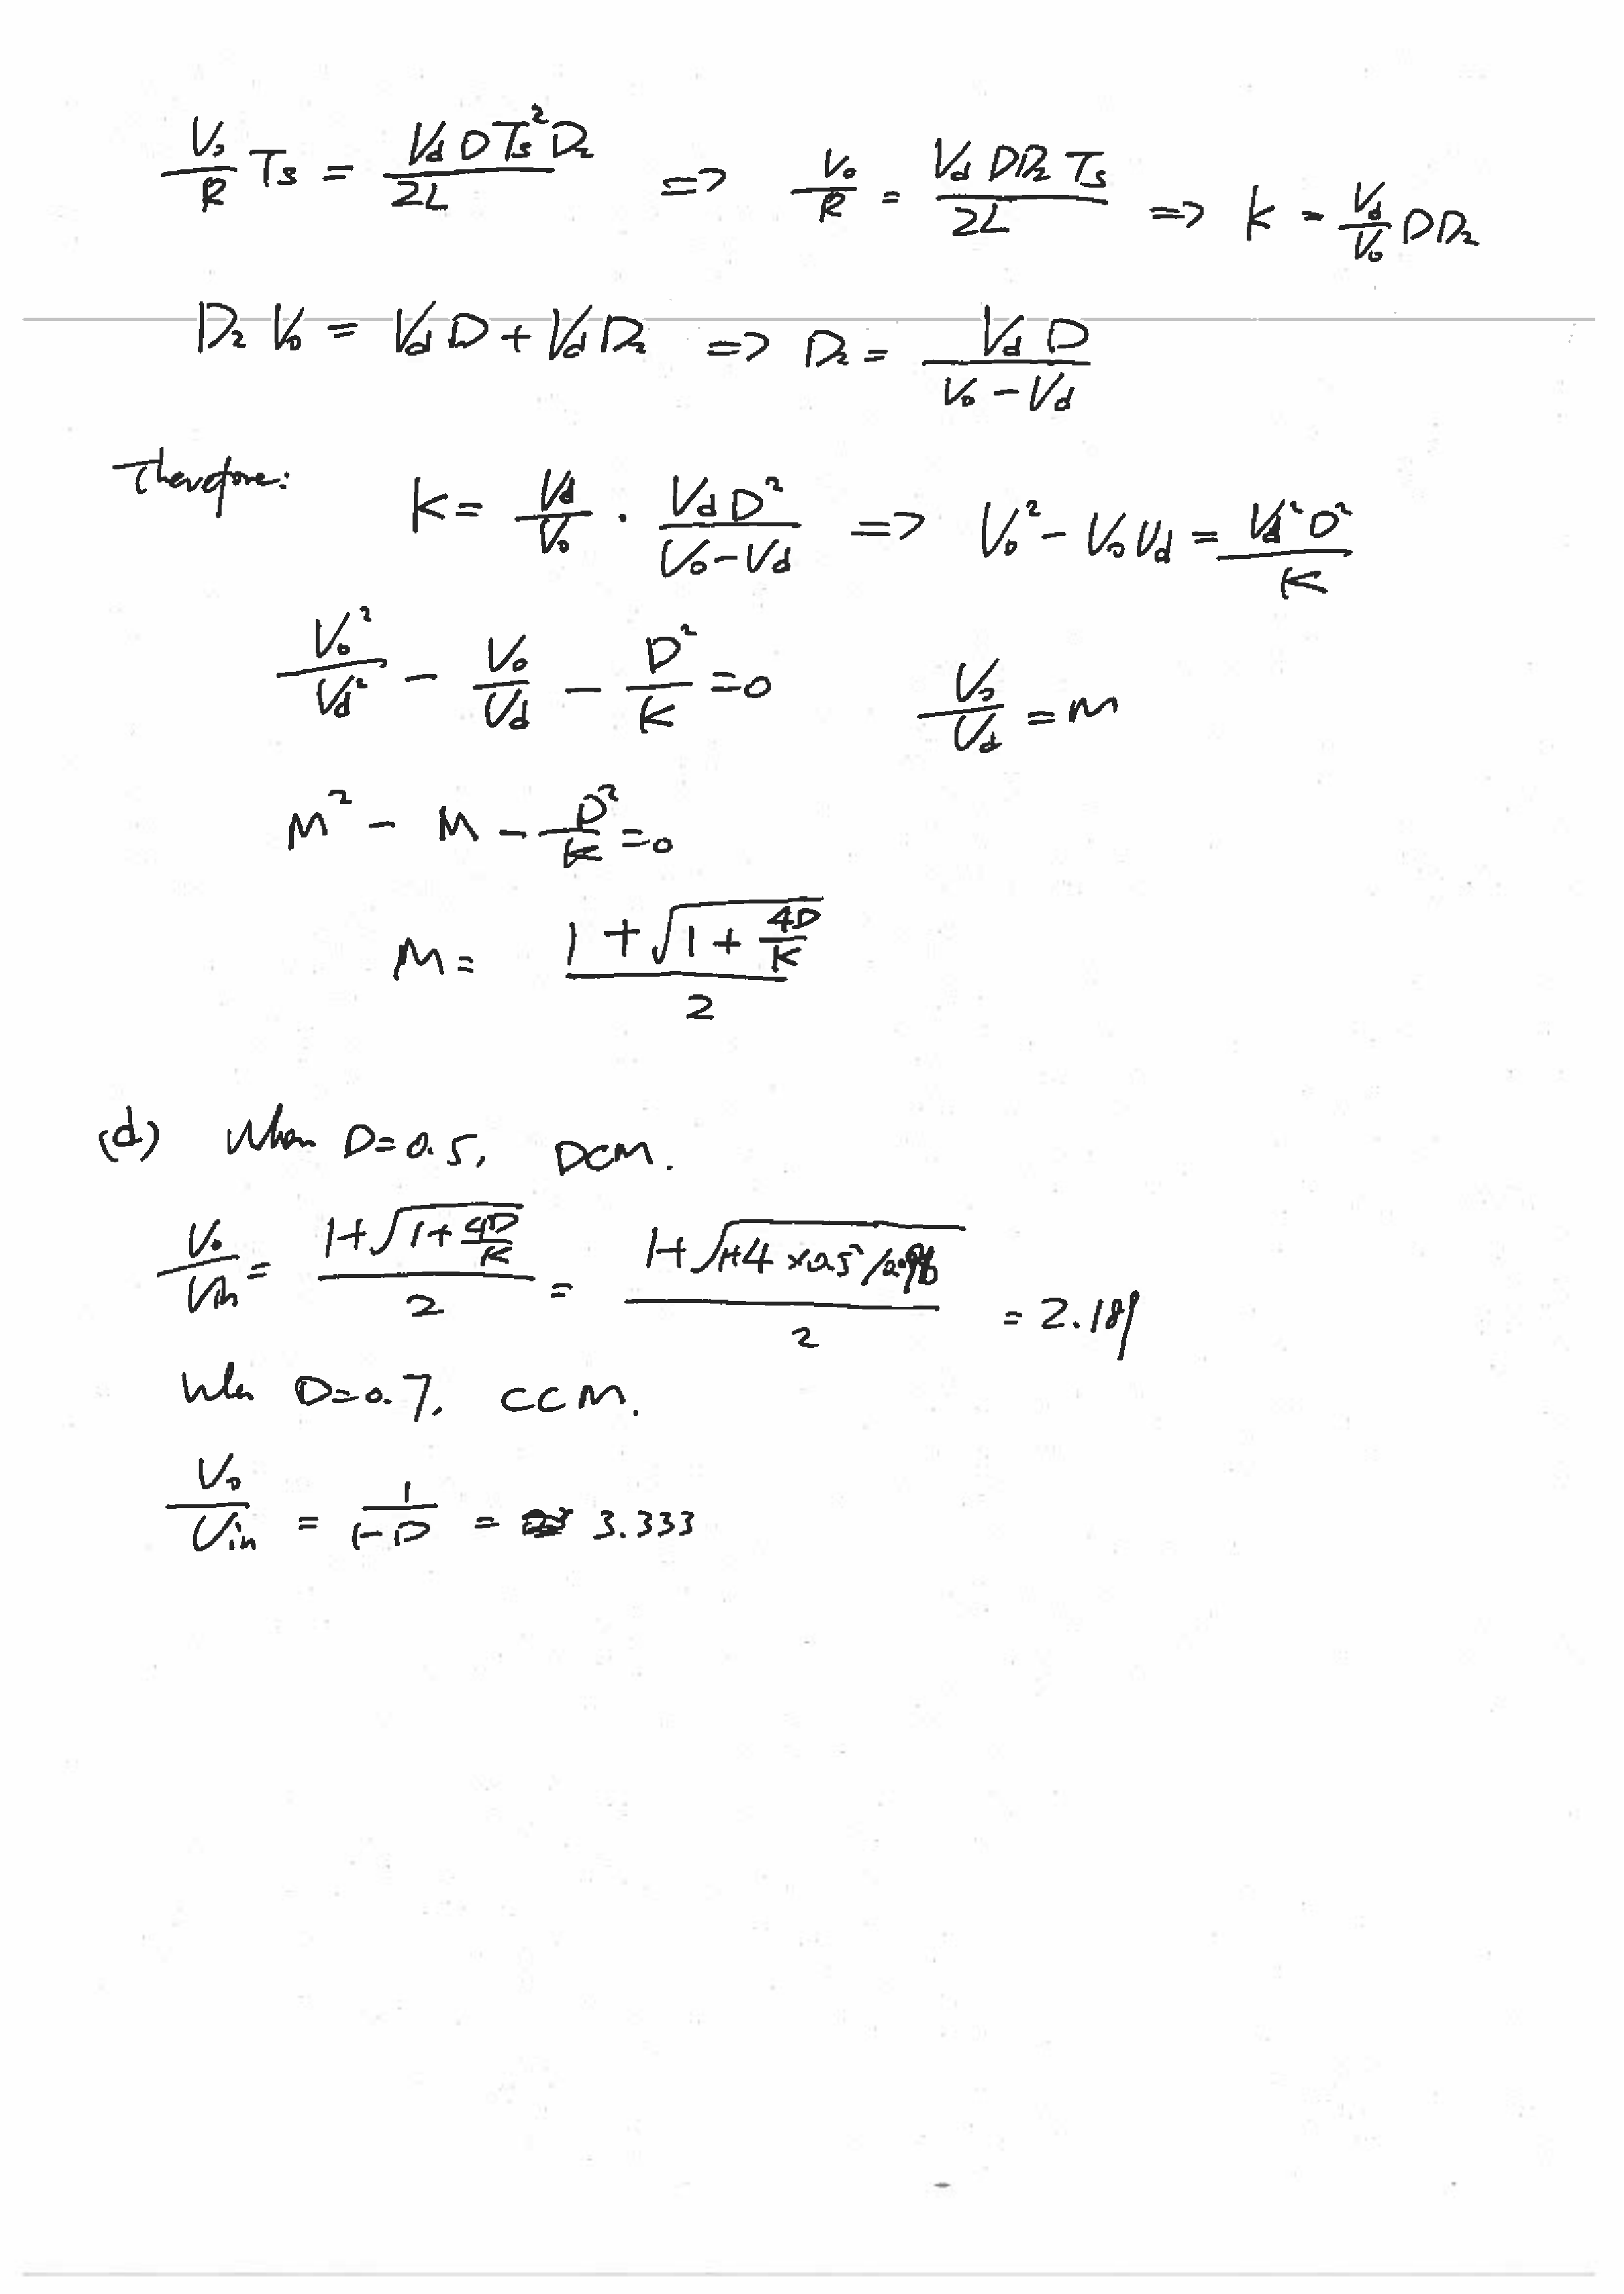 V₀/R Tₛ = V_d D Tₛ² D₂ / 2L => V₀/R = V_d D D₂ Tₛ / 2L => K = V_d/V₀ D D₂
D₂ V₀ = V_d D + V_d D₂ => D₂ = V_d D / (V₀ - V_d)
Therefore: K = V_d/V₀ · V_d D² / (V₀ - V_d) => V₀² - V₀ V_d = V_d² D² / K
V₀²/V_d² - V₀/V_d - D²/K = 0 V₀/V_d = M
M² - M - D²/K = 0
M = (1 + √(1 + 4D/K)) / 2
(d) When D = 0.5, DCM.
V₀/Vin = (1 + √(1 + 4D/K)) / 2 = (1 + √(1+4 × 0.5² / 0.096)) / 2 = 2.189
When D = 0.7, CCM.
V₀/Vin = 1/(1-D) = 3.333